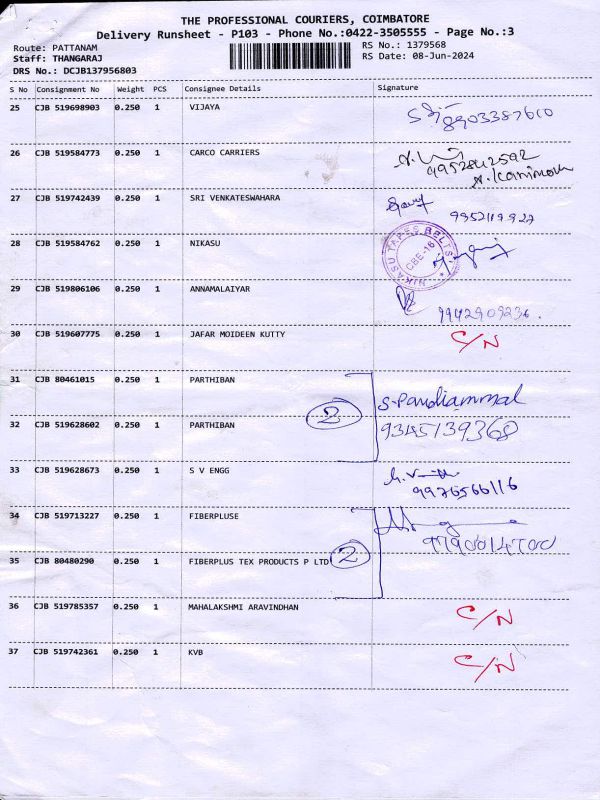 THE PROFESSIONAL COURIERS, COIMBATORE
Delivery Runsheet - P103 - Phone No.:0422-3505555 - Page No.:3
Route: PATTANAM
RS No.: 1379568
Staff: THANGARAJ
RS Date: 08-Jun-2024
DRS No.: DCJB137956803
S No Consignment No Weight PCS Consignee Details Signature
25 CJB 519698903 0.250 1 VIJAYA 8903387610
26 CJB 519584773 0.250 1 CARCO CARRIERS
9952842592
27 CJB 519742439 0.250 1 SRI VENKATESWAHARA
9952119927
28 CJB 519584762 0.250 1 NIKASU
NIKASU TAPES BELTS
CBE-16
29 CJB 519806106 0.250 1 ANNAMALAIYAR
9942909236.
30 CJB 519607775 0.250 1 JAFAR MOIDEEN KUTTY C/N
31 CJB 80461015 0.250 1 PARTHIBAN S.Pandiammal
2
32 CJB 519628602 0.250 1 PARTHIBAN 9345139368
33 CJB 519628673 0.250 1 S V ENGG
9976566116
34 CJB 519713227 0.250 1 FIBERPLUSE
35 CJB 80480290 0.250 1 FIBERPLUS TEX PRODUCTS P LTD 2
36 CJB 519785357 0.250 1 MAHALAKSHMI ARAVINDHAN C/N
37 CJB 519742361 0.250 1 KVB C/N